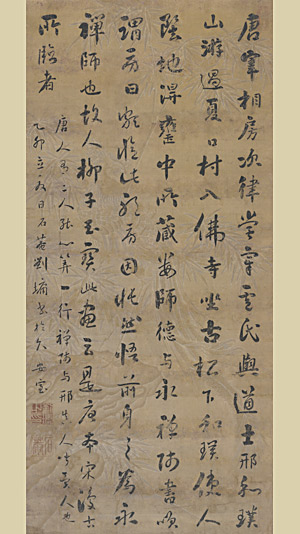 唐宰相房次律嘗宰盧氏與道士邢和璞
山游過夏口村入佛寺坐古松下和璞使人
鑿地得甕中所藏婁師德與永禪師書喚
謂房曰頗憶此耶房因悵然悟前身之為永
禪師也故人柳子玉寶此畫云是唐本宋復古
所臨者
唐人有二人能心算一行禪師與邢
乙卯立 日石菴劉墉書於久安室